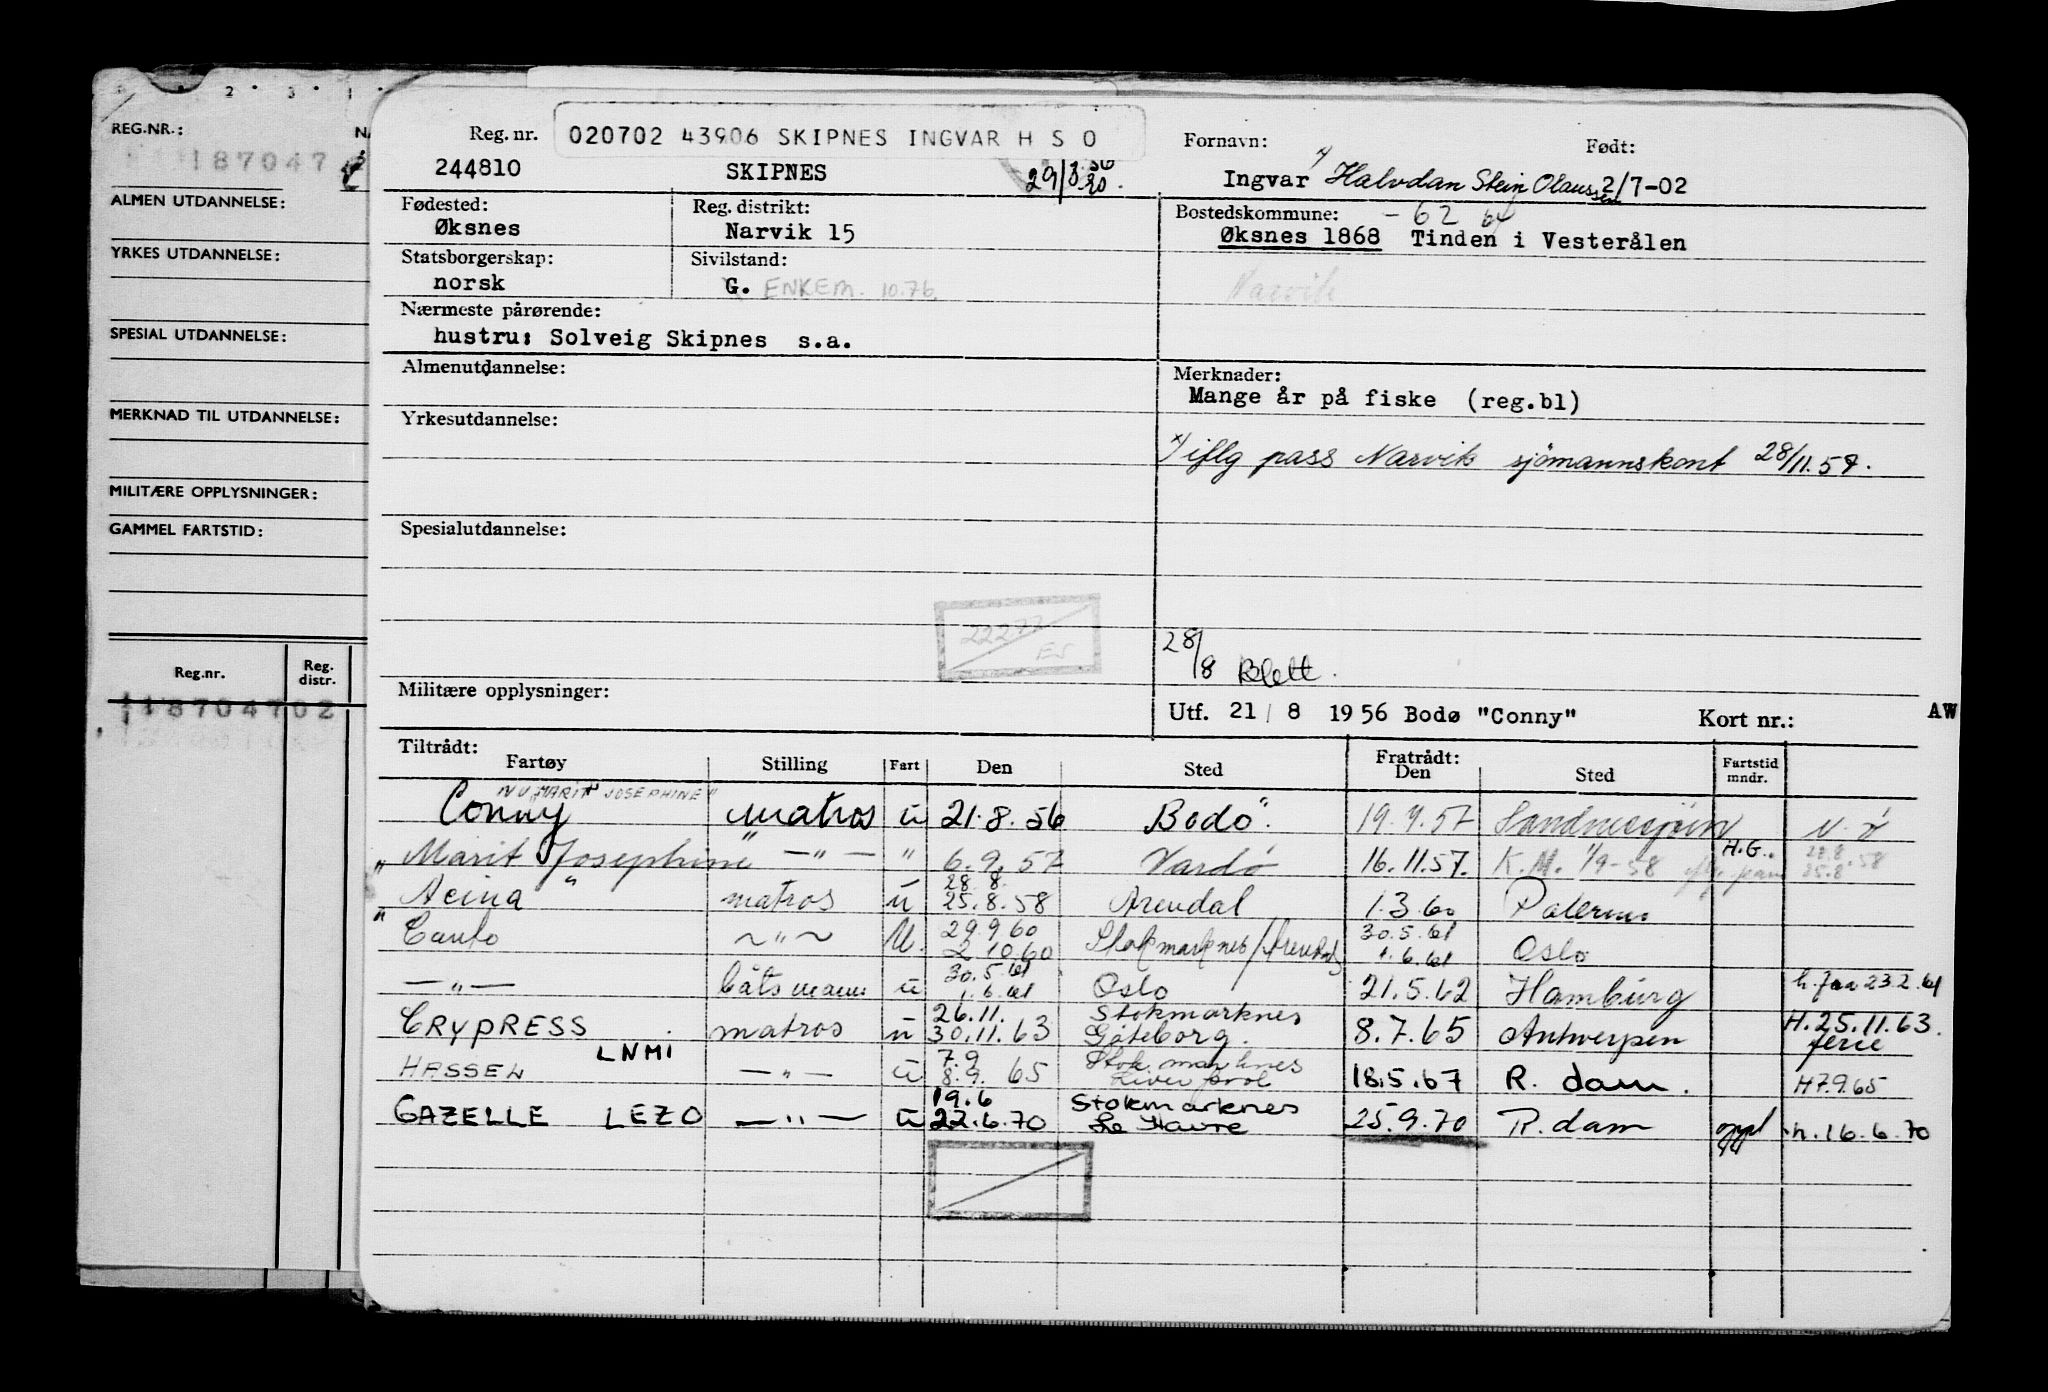 REG.NR.:
187047
ALMEN UTDANNELSE:
YRKES UTDANNELSE:
SPESIAL UTDANNELSE:
MERKNAD TIL UTDANNELSE:
MILITÆRE OPPLYSNINGER:
GAMMEL FARTSTID:
Reg.nr. Reg. distr.
18704702
Reg. nr. 020702 43906 SKIPNES INGVAR H S O Fornavn: Født:
244810 SKIPNES 29/8.56 Ingvar x) Halvdan Stein Olaussen 2/7-02
Fødested: Reg. distrikt: Bostedskommune: -62 64
Øksnes Narvik 15 Øksnes 1868 Tinden i Vesterålen
Statsborgerskap: Sivilstand:
norsk G. ENKEM. 10.76. Narvik
Nærmeste pårørende:
hustru: Solveig Skipnes s.a.
Almenutdannelse: Merknader:
Mange år på fiske (reg.bl)
Yrkesutdannelse:
x) iflg pass Narvik sjömannskont 28/11.57.
Spesialutdannelse:
22277
ES
28/8 Blett.
Militære opplysninger:
Utf. 21/8 1956 Bodø "Conny" Kort nr.: AW
Tiltrådt: Fratrådt:
Fartøy Stilling Fart Den Sted Den Sted Fartstid mndr.
NU "MARIT JOSEPHINE"
Conny matros u 21.8.56 Bodö. 19.9.57 Sandnessjöen N.Ö
"Marit Josephine" —"— " 6.9.57 Vardö 16.11.57. K.M. 1/9-58 H.G. 28.8 25.8.58
28.8.
"Acina" matros u 25.8.58 Arendal 1.3.60 Palermo
29.9 60 30.5.61
"Canto —"— U. 2 10.60 Stokmarknes/Arendal 1.6.61 Oslo
30.5.61
—"— båtsmann u 1.6.61 Oslo 21.5.62 Hamburg h. fra 23.2.61
26.11. Stokmarknes H.25.11.63.
CRYPRESS matros u 30.11.63 Göteborg. 8.7.65 Antwerpen ferie
LNMI 7.9 Stokmarknes
HASSEL —"— u 8.9. 65 Liverpool 18.5.67 R. dam. H7.9.65
19.6 Stokmarknes
GAZELLE LEZO —"— u 22.6.70 Le Havre 25.9.70 R.dam oppl h.16.6.70